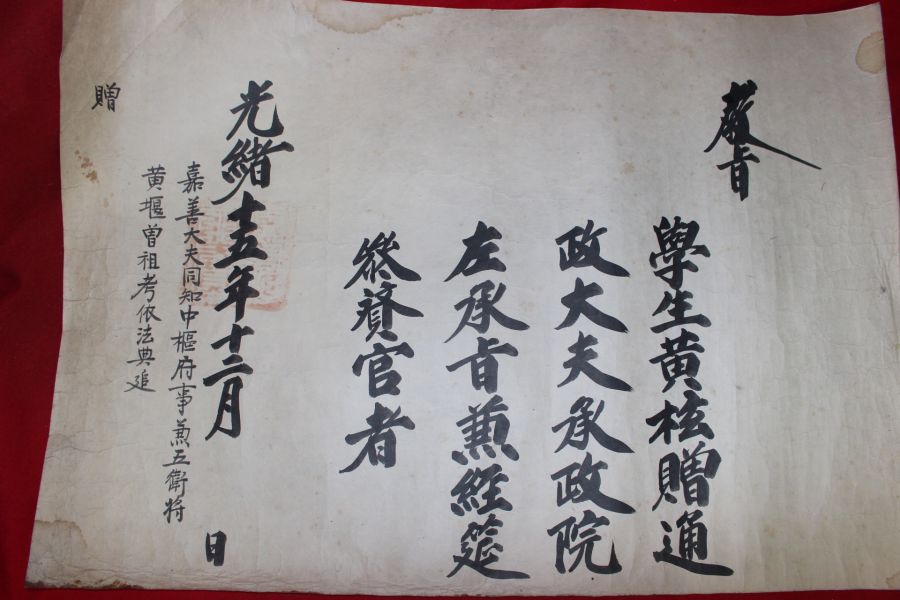 敎旨
學生黄核贈通
政大夫承政院
左承旨兼經筵
參贊官者
光緒十五年十二月 日
嘉善大夫同知中樞府事兼五衛將
黄堰曽祖考依法典追
贈